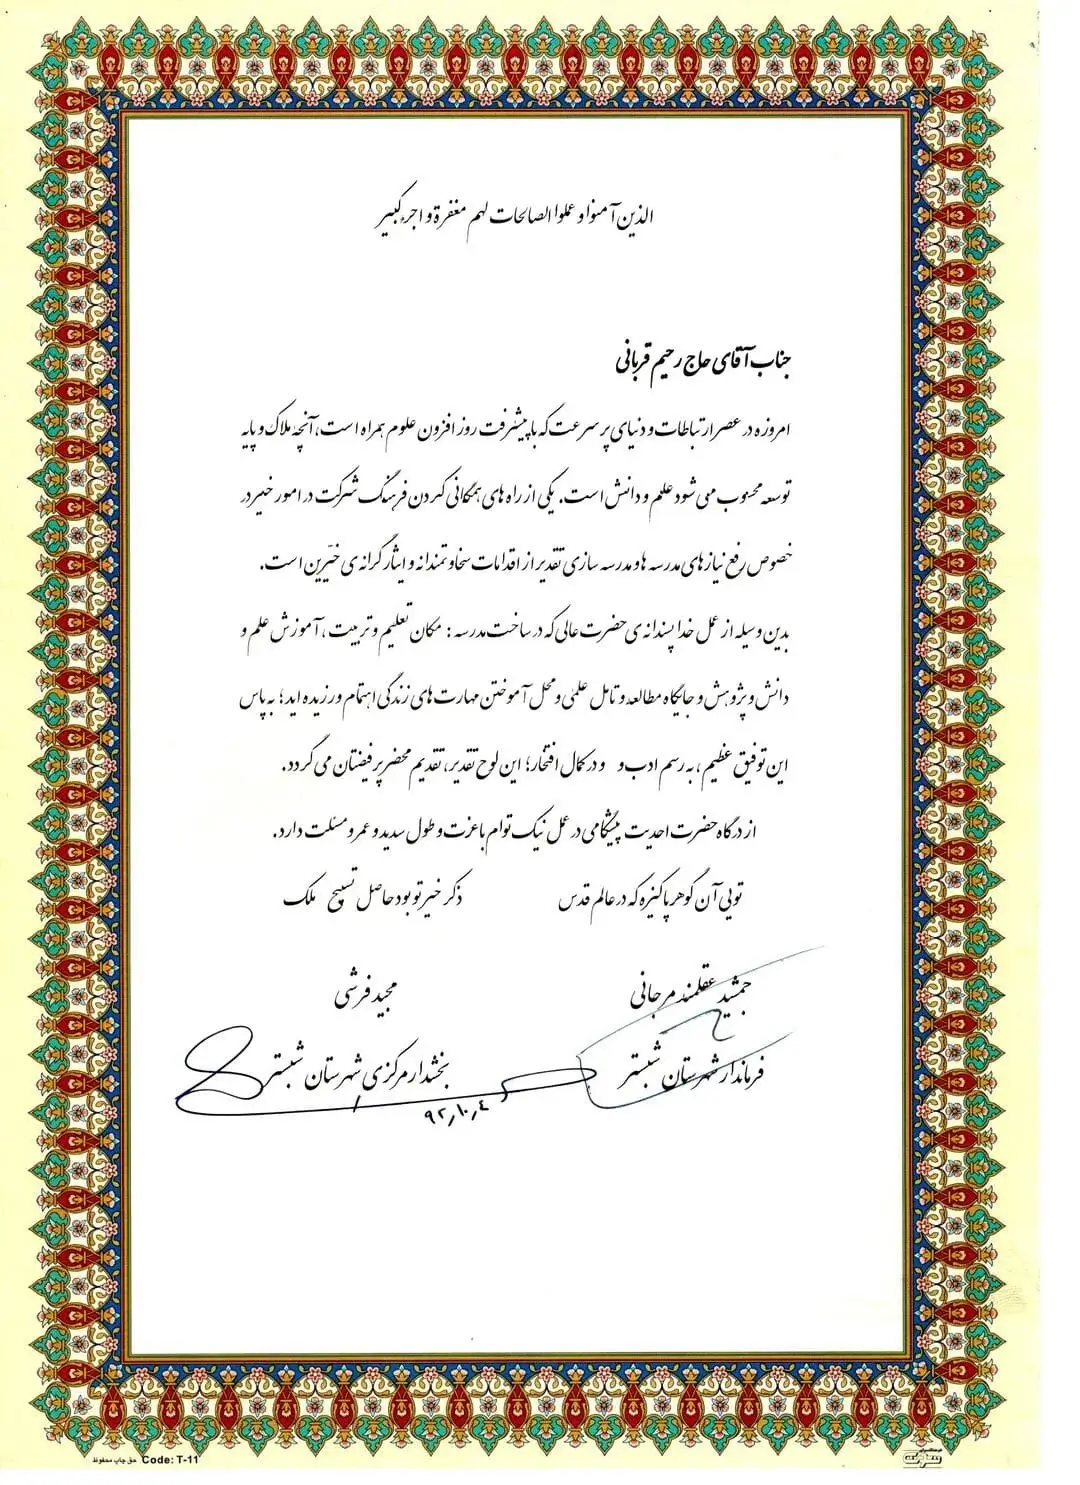 الذین آمنوا و عملوا الصالحات لهم مغفرة و اجر کبیر
جناب آقای حاج رحیم قربانی
امروزه در عصر ارتباطات و دنیای پر سرعت که با پیشرفت روز افزون علوم همراه است، آنچه ملاک و پایه
توسعه محسوب می شود علم و دانش است. یکی از راه های همگانی کردن فرهنگ شرکت در امور خیر در
خصوص رفع نیازهای مدرسه ها و مدرسه سازی تقدیر از اقدامات سخاوتمندانه و ایثارگرانه ی خیّرین است.
بدین وسیله از عمل خدا پسندانه ی حضرت عالی که در ساخت مدرسه : مکان تعلیم و تربیت ، آموزش علم و
دانش و پژوهش و جایگاه مطالعه و تامل علمی و محل آموختن مهارت های زندگی اهتمام ورزیده اید؛ به پاس
این توفیق عظیم ، به رسم ادب و و در کمال افتخار؛ این لوح تقدیر، تقدیم محضر پر فیضتان می گردد.
از درگاه حضرت احدیت پیشگامی در عمل نیک توام با عزت و طول سدید و عمر و مسئلت دارد.
تویی آن گوهر پاکیزه که در عالم قدس ذکر خیر تو بود حاصل تسبیح ملک
جمشید عقلمند مرجانی مجید فرشی
فرماندار شهرستان شبستر بخشدار مرکزی شهرستان شبستر
۹۲٫۱۰٫۴
حق چاپ محفوظ Code: T-11